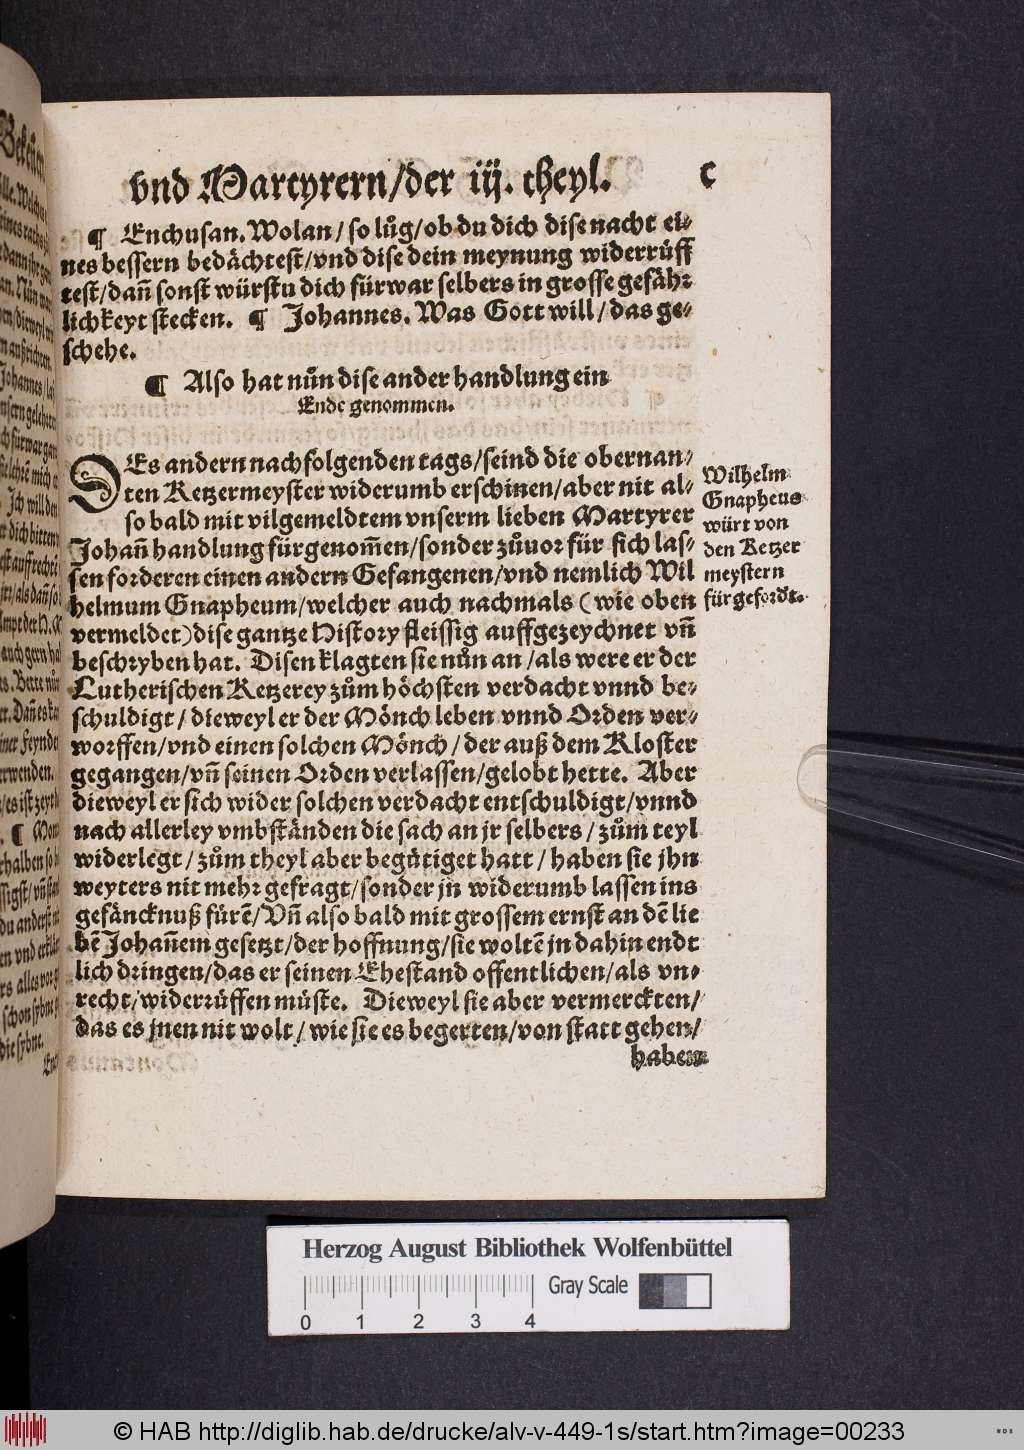 vnd Martyrern/der iij. theyl. C
¶ Enchusan. Wolan/so lůg/ob du dich dise nacht ei⸗
nes bessern bedächtest/vnd dise dein meynung widerrůff
test/dañ sonst würstu dich fürwar selbers in grosse gefähr
lichkeyt stecken. ¶ Johannes. Was Gott will/das ge⸗
schehe.
¶ Also hat nůn dise ander handlung ein
Ende genommen.
DEs andern nachfolgenden tags/seind die obernan⸗
ten Ketzermeyster widerumb erschinen/aber nit al⸗
so bald mit vilgemeldtem vnserm lieben Martyrer
Johañ handlung fürgenom̄en/sonder zůuor für sich las⸗
sen forderen einen andern Gefangenen/vnd nemlich Wil
helmum Gnapheum/welcher auch nachmals (wie oben
vermeldet) dise gantze History fleissig auffgezeychnet vñ
beschryben hat. Disen klagten sie nůn an/als were er der
Lutherischen Ketzerey zům höchsten verdacht vnnd be⸗
schuldigt/dieweyl er der Mönch leben vnnd Orden ver⸗
worffen/vnd einen solchen Mönch/der auß dem Kloster
gegangen/vñ seinen Orden verlassen/gelobt hette. Aber
dieweyl er sich wider solchen verdacht entschuldigt/vnnd
nach allerley vmbständen die sach an jr selbers/zům teyl
widerlegt/zům theyl aber begütiget hatt/haben sie jhn
weyters nit mehr gefragt/sonder jn widerumb lassen ins
gefäncknuß fürē/Vñ also bald mit grossem ernst an dē lie
bē Johañem gesetzt/der hoffnung/sie woltē jn dahin endt
lich dringen/das er seinen Ehestand offentlichen/als vn⸗
recht/widerrůffen müste. Dieweyl sie aber vermerckten/
das es jnen nit wolt/wie sie es begerten/von statt gehen/
haben
Wilhelm
Gnapheus
würt von
den Ketzer
meystern
fürgefordt.
Herzog August Bibliothek Wolfenbüttel
Gray Scale
0 1 2 3 4
© HAB http://diglib.hab.de/drucke/alv-v-449-1s/start.htm?image=00233